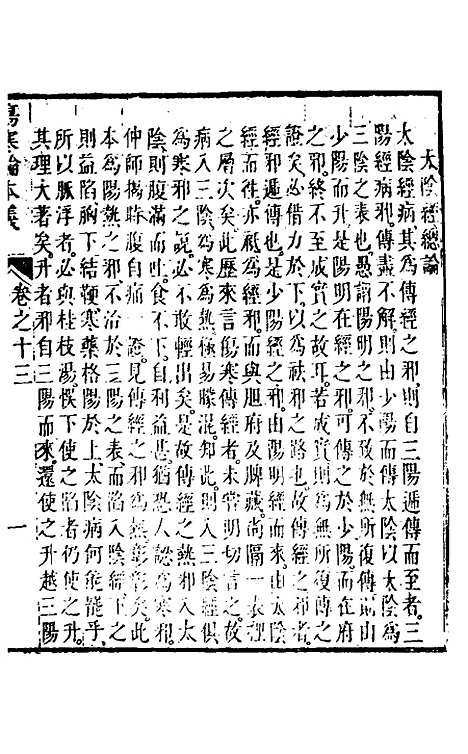 太陰經總論
太陰經病其為傳經之邪則自三陽遞傳而至者三
陽經病邪傳盡不解則由少陽而傳太陰以太陰為
三陰之表也愚謂陽明之邪不致於無所復傳則由
少陽而升是陽明在經之邪可傳之於少陽而在府
之邪終不至成實之故耳若成實則為無所復傳之
證矣必借力於下以為袪邪之路也故傳經之邪由
經而徃亦秪為經邪而與胆府及脾藏尚隔一表裡
之層次矣此歷來言傷寒傳經者未常明切言之故
病入三陰為寒為熱極易矇混知此三陰經俱
為寒邪之說必不敢輕出矣是故傳經之熱邪入太
陰則腹滿而吐食不下自利益甚猶恐人認為寒邪
仲師揭時腹自痛一證見傳經之邪為無彰彰矣此
本為陽熱之邪不治於三陽之表而陷入太陰經下之
則益陷胸下結鞕寒藥格陽於上太陰病何能罷乎
所以脈浮者必與桂枝湯悞下使之陷者仍使之升
其理大著矣升者邪自三陽而來還使之升越三陽
傷寒論本義
卷之十三
一